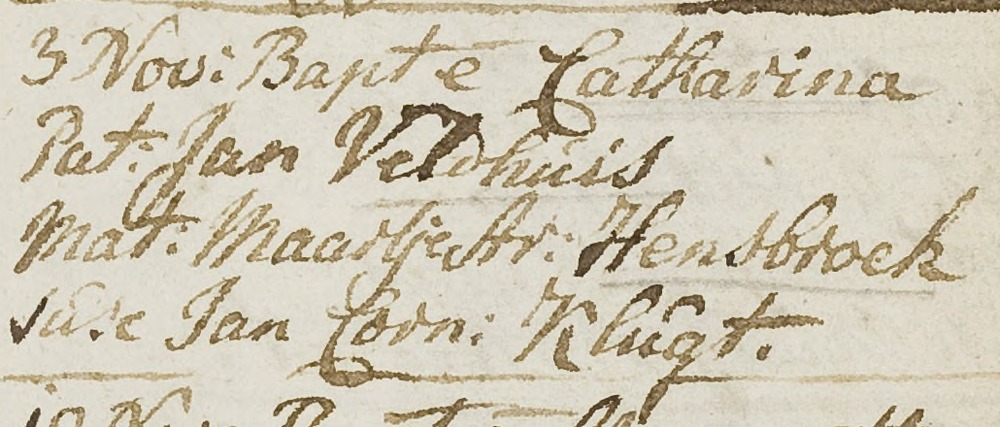 3 Nov: Bapt e Catharina
Pat: Jan Veldhuis
Mat: Maartje Ar: Hensbroek
susc Jan Corn: Klugt.